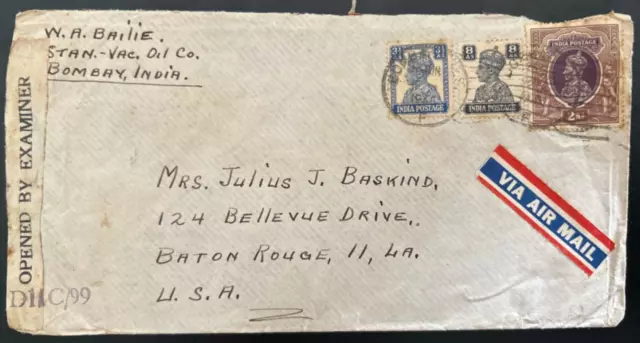 W. A. Bailie.
Stan.-Vac. Oil Co.
Bombay, India.
OPENED BY EXAMINER
INDIA POSTAGE
8 As 8 As
INDIA POSTAGE
INDIA POSTAGE
VIA AIR MAIL
Mrs. Julius J. Baskind,
124 Bellevue Drive,
Baton Rouge, 11, La.
U.S.A.